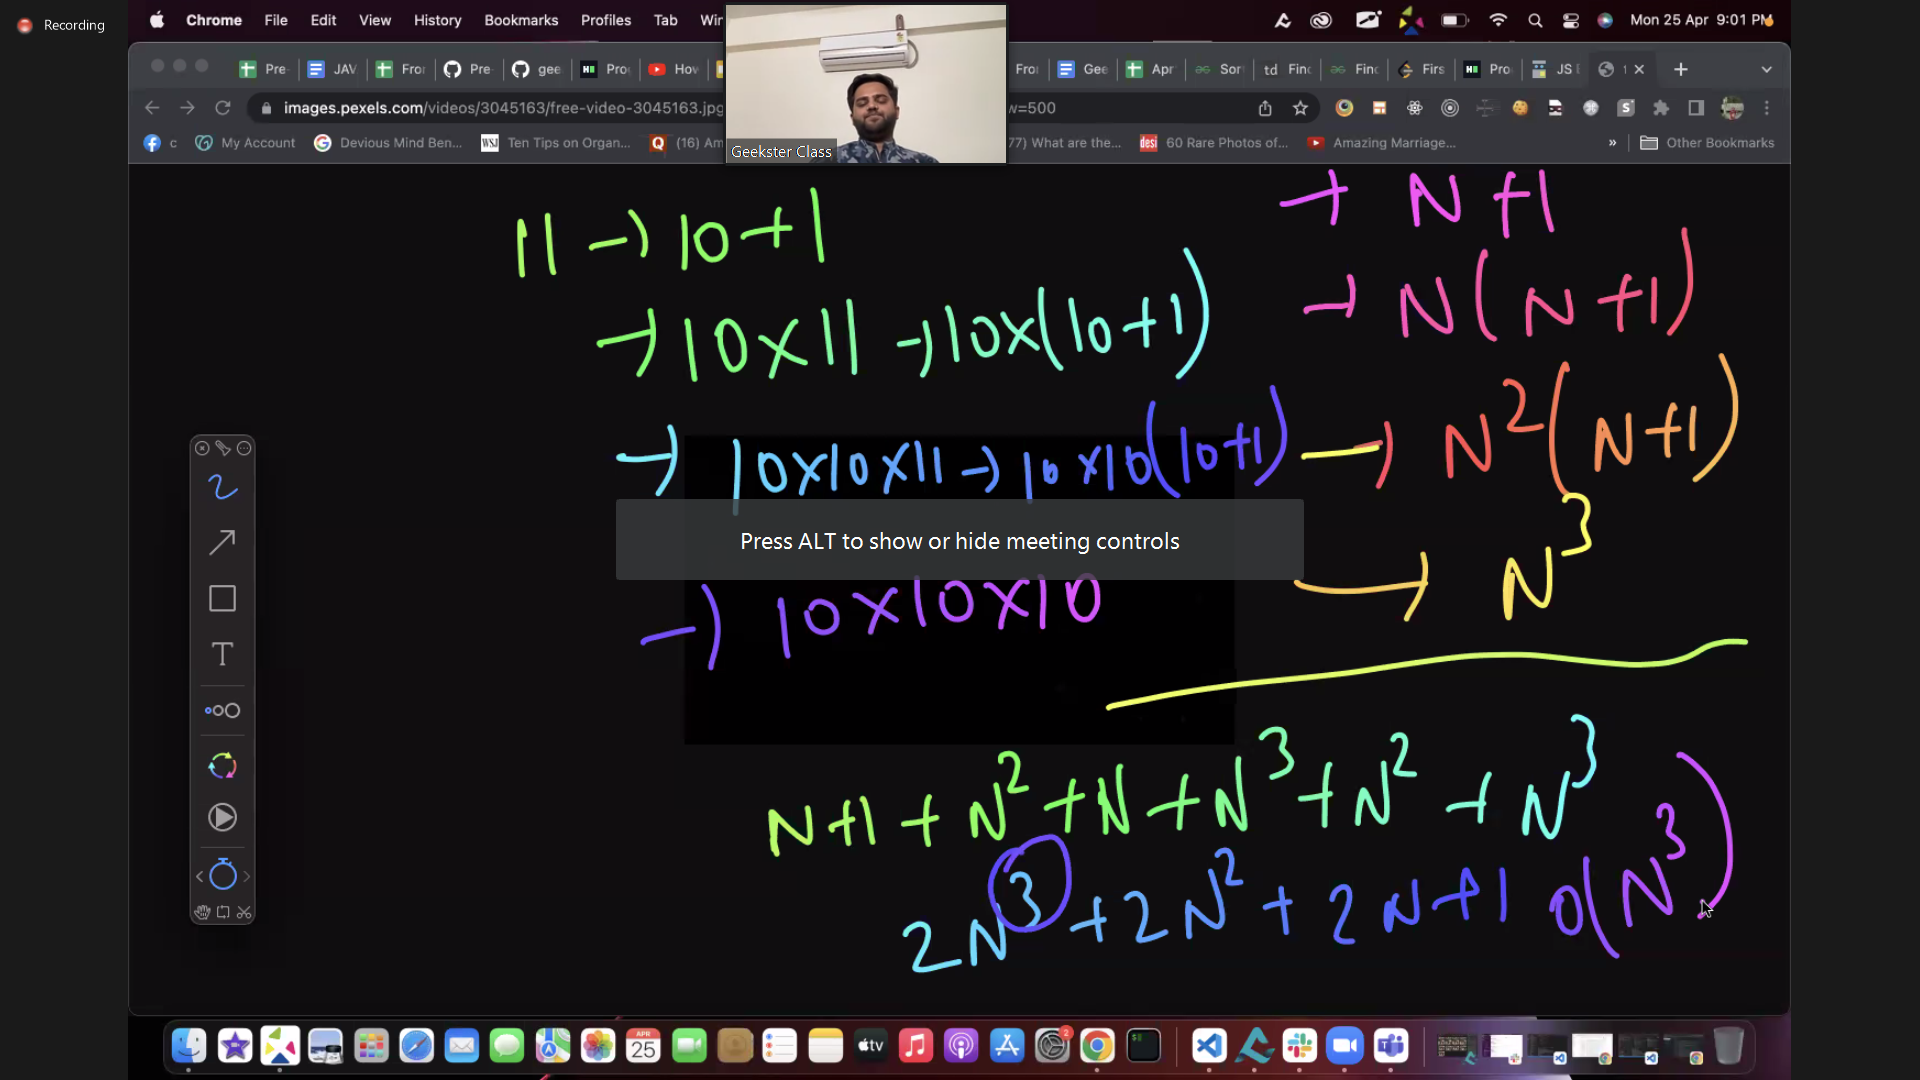 Recording
Chrome File Edit View History Bookmarks Profiles Tab Mon 25 Apr 9:01 PM
Pre JAV Fro Pre gee Pro How Fro Gee Apr Sor td Finc Finc Firs Pro JS 1
images.pexels.com/videos/3045163/free-video-3045163.jpg w=500
c My Account Devious Mind Ben... WSJ Ten Tips on Organ... (16) Am 77) What are the... desi 60 Rare Photos of... Amazing Marriage... » Other Bookmarks
Geekster Class
11 → 10+1
→ N+1
→ 10x11 → 10x(10+1)
→ N(N+1)
→ 10x10x11 → 10x10(10+1) → N²(N+1)
Press ALT to show or hide meeting controls
→ 10x10x10 → N³
T
N+1 + N² + N + N³ + N² + N³
2N³ + 2N² + 2N + 1 O(N³)
APR
25
tv
2